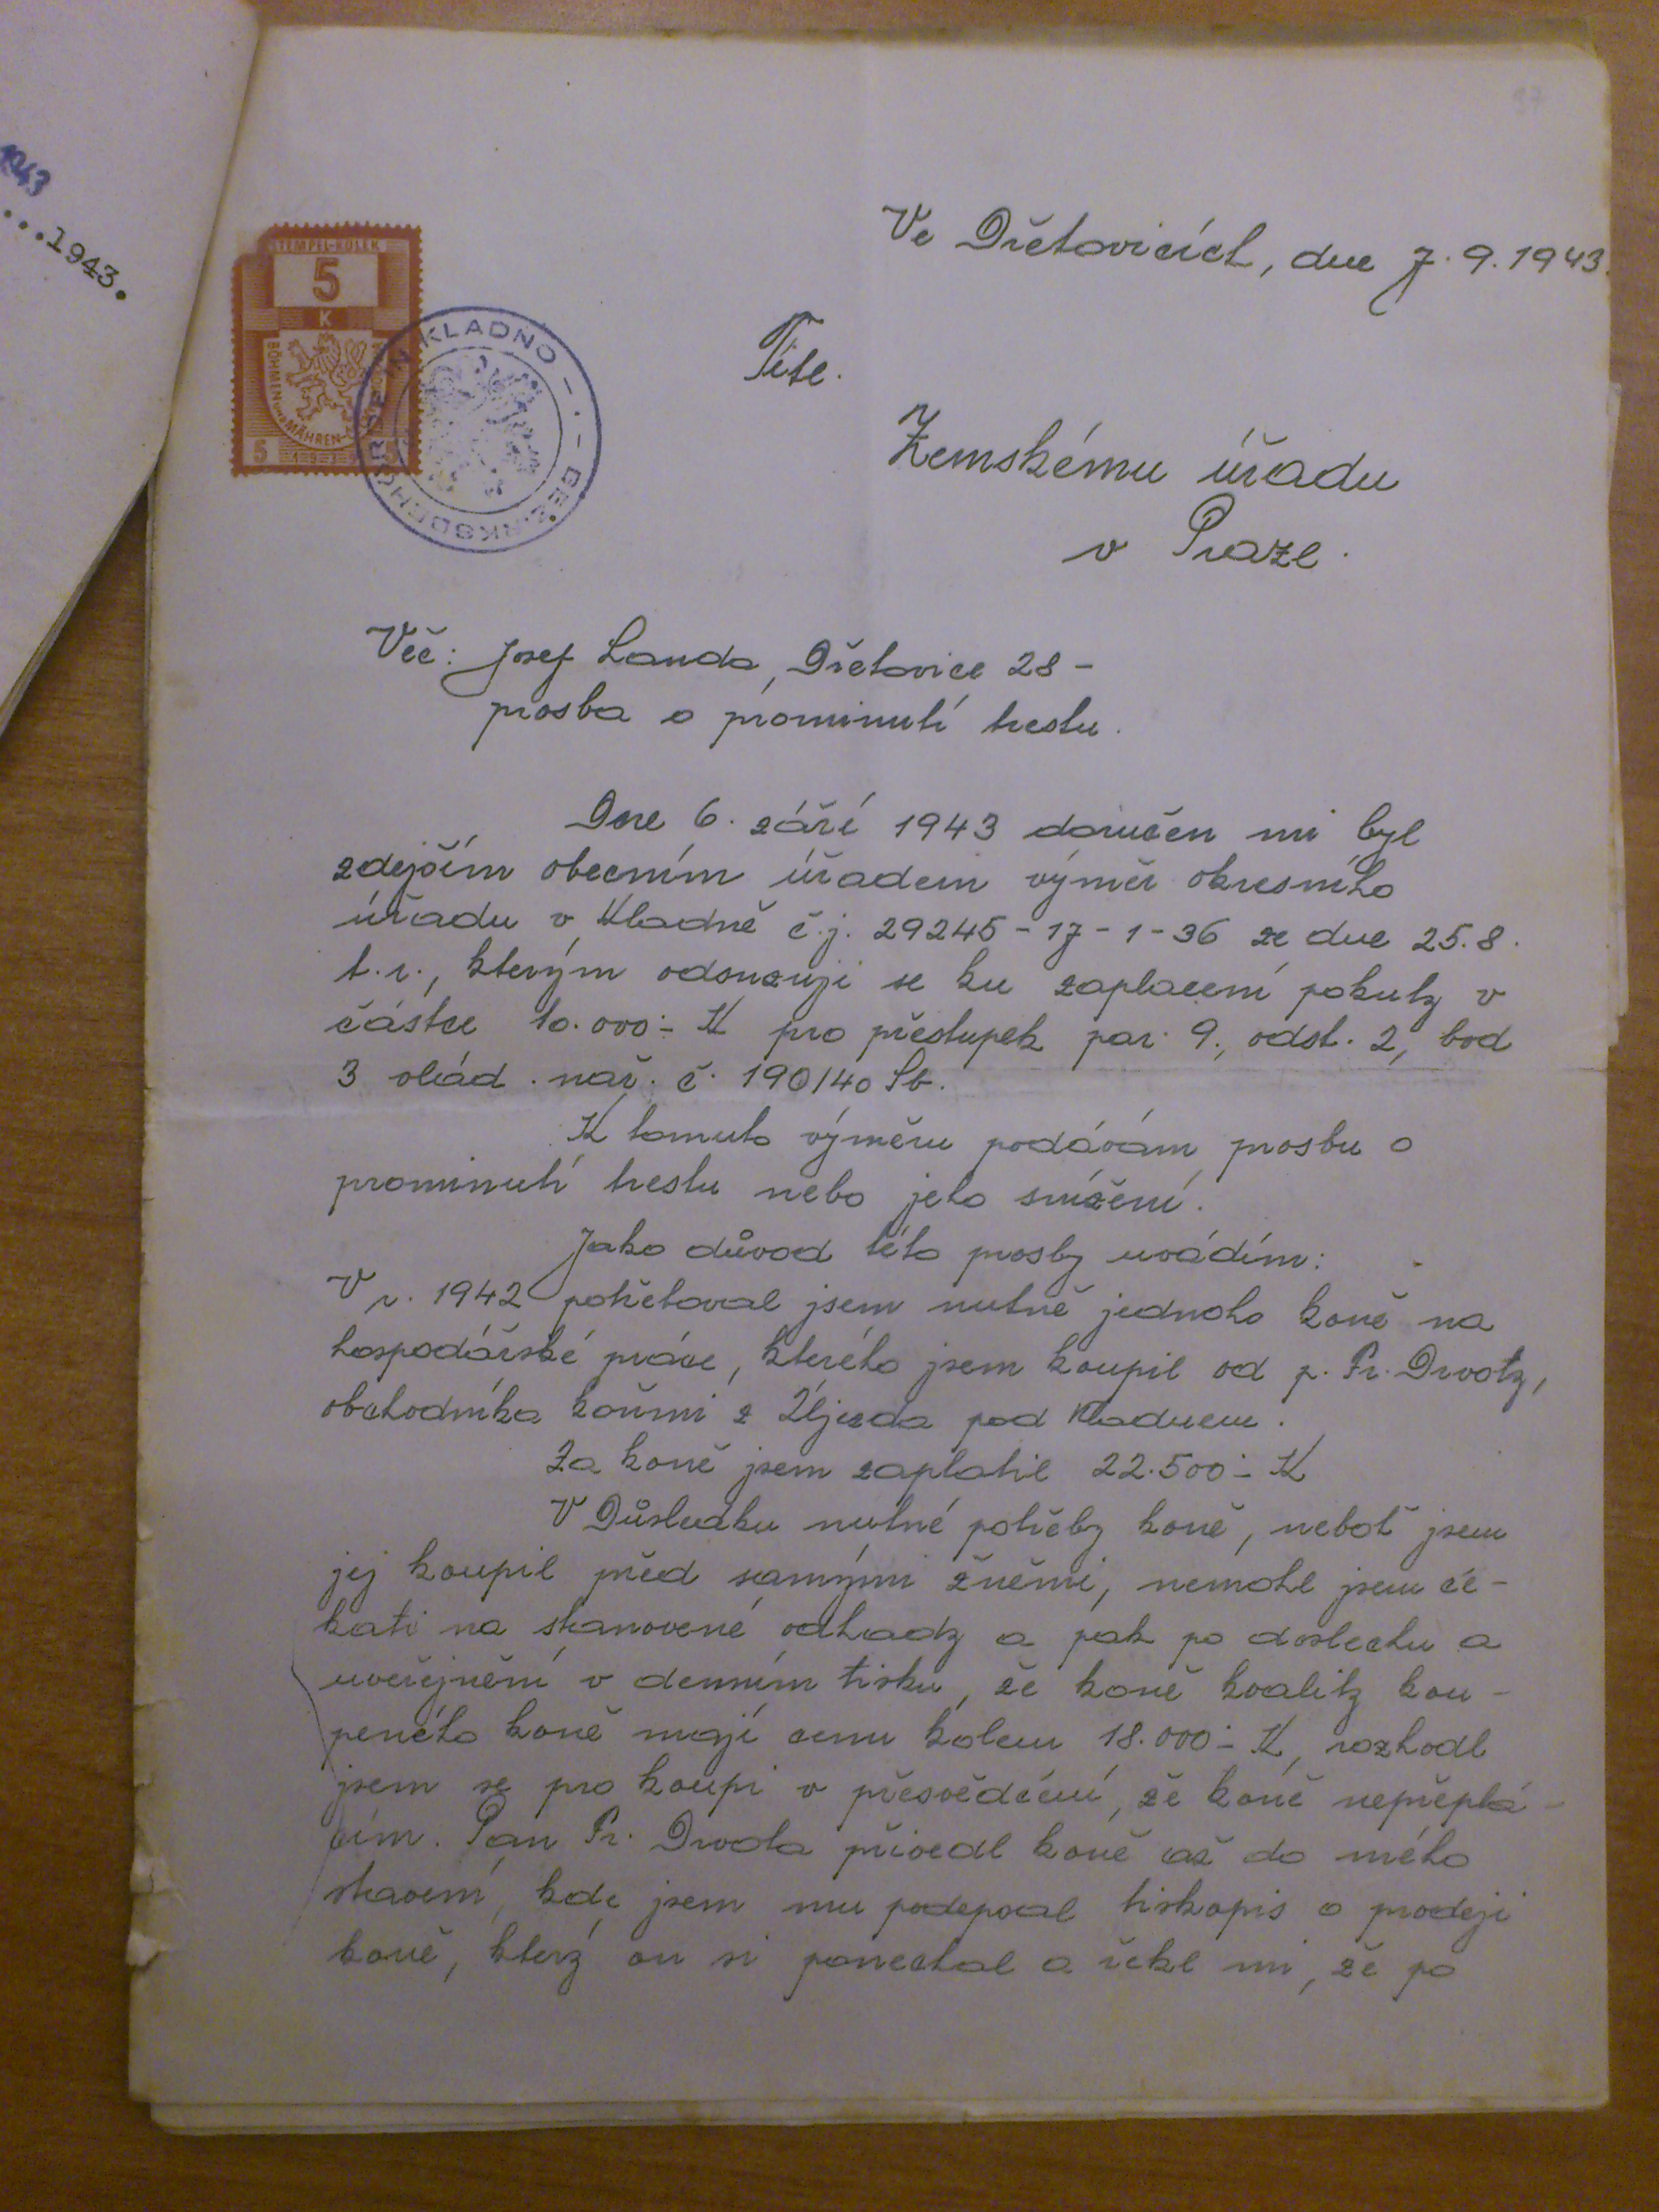 1943
...1943.
Ve Dřetovicích, dne 7.9.1943.
STEMPEL-KOLEK
5
K
BÖHMEN UND MÄHREN
5
KLADNO
Tit.
Zemskému úřadu
v Praze.
Věc: Josef Landa, Dřetovice 28 -
prosba o prominutí trestu.
Dne 6. září 1943 doručen mi byl
zdejším obecním úřadem výměr okresního
úřadu v Kladně č.j. 29245-17-1-36 ze dne 25.8.
t.r., kterým odsuzuji se ku zaplacení pokuty v
částce 10.000·- K pro přestupek par. 9., odst. 2, bod
3 vlád. nař. č. 190/40 Sb.
K tomuto výměru podávám prosbu o
prominutí trestu nebo jeho snížení.
Jako důvod této prosby uvádím:
V r. 1942 potřeboval jsem nutně jednoho koně na
hospodářské práce, kterého jsem koupil od p. Fr. Drvoty,
obchodníka koňmi z Újezda pod Kladnem.
Za koně jsem zaplatil 22.500·- K
V Důsledku nutné potřeby koně, neboť jsem
jej koupil před samými žněmi, nemohl jsem če-
kati na stanovené odhady a pak po doslechu a
uveřejnění v denním tisku, že koně kvality kou-
peného koně mají cenu kolem 18.000·- K, rozhodl
jsem se pro koupi v přesvědčení, že koně nepřeplá-
cím. Pan Fr. Drvota přivedl koně až do mého
stavení, kde jsem mu podepsal tiskopis o prodeji
koně, který on si ponechal a řekl mi, že po